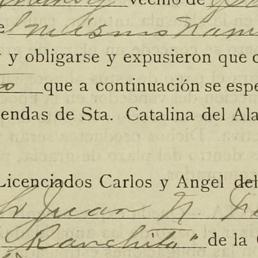 vecino de
e mismo
y obligarse y expusieron que
que a continuación se espe
endas de Sta. Catalina del Ala
Licenciados Carlos y Angel del
Juan N.
Ranchito" de la